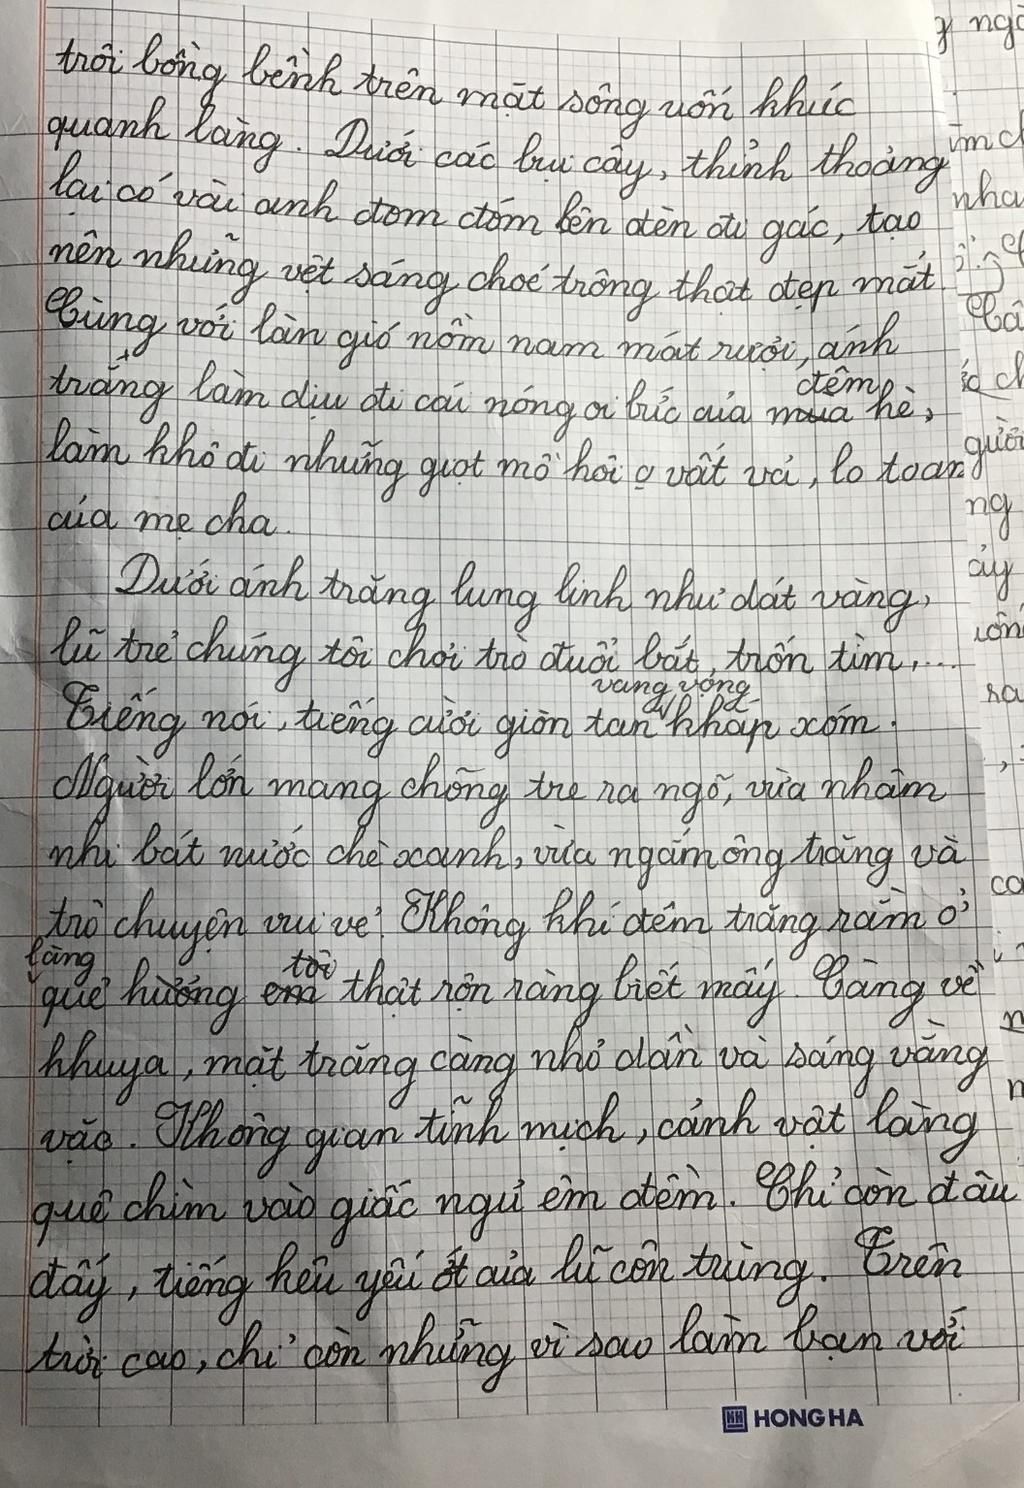 trôi bồng bềnh trên mặt sông uốn khúc
quanh làng. Dưới các bụi cây, thỉnh thoảng
lại có vài anh đom đóm lên đèn đi gác, tạo
nên những vệt sáng choé trông thật đẹp mắt.
Cùng với làn gió nồm nam mát rượi, ánh
trăng làm dịu đi cái nóng oi bức của mùa hè,
đêm
làm khô đi những giọt mồ hôi vất vả, lo toan
của mẹ cha.
Dưới ánh trăng lung linh như dát vàng,
lũ trẻ chúng tôi chơi trò đuổi bắt, trốn tìm,...
vang vọng
Tiếng nói, tiếng cười giòn tan khắp xóm.
Người lớn mang chõng tre ra ngõ, vừa nhâm
nhi bát nước chè xanh, vừa ngắm ông trăng và
trò chuyện vui vẻ. Không khí đêm trăng rằm ở
làng
tôi
quê hương em thật rộn ràng biết mấy. Càng về
khuya, mặt trăng càng nhỏ dần và sáng vằng
vặc. Không gian tĩnh mịch, cảnh vật làng
quê chìm vào giấc ngủ êm đềm. Chỉ còn đâu
đấy, tiếng kêu yếu ớt của lũ côn trùng. Trên
trời cao, chỉ còn những vì sao làm bạn với
HONG HA